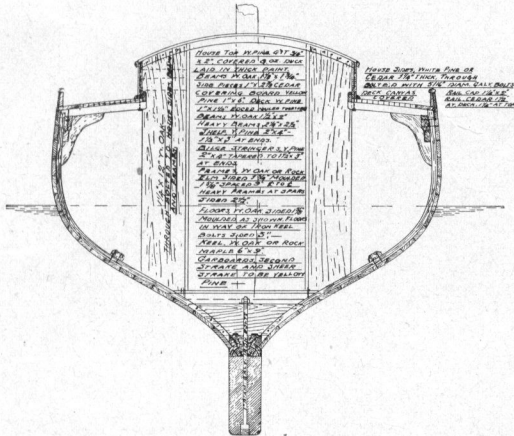 HOUSE TOP W. PINE G&T 3/8"
X 2". COVERED 8 OZ DUCK
LAID IN THICK PAINT.
BEAMS W. OAK 1 1/8" X 1 3/4"
SIDE PIECES 1" X 2 3/4" CEDAR
COVERING BOARD YELLOW
PINE 1" X 6". DECK W. PINE
1" X 1 1/2" EDGED NAILED TOGETHER
BEAMS W. OAK 1 1/2" X 2"
HEAVY BEAMS 2 1/8" X 2 1/2"
SHELF Y. PINE 2" X 4"
1 1/2" X 3" AT ENDS.
BILGE STRINGERS Y. PINE
2" X 4" TAPERED TO 1 1/2" X 3"
AT ENDS.
FRAMES W. OAK OR ROCK
ELM SIDED MOULDED
SPACED 9" C TO C
HEAVY FRAMES AT SPARS
SIDED 2 1/2".
FLOORS W. OAK SIDED
MOULDED AS SHOWN. FLOORS
IN WAY OF IRON KEEL
BOLTS SIDED 3".
KEEL W. OAK OR ROCK
MAPLE 6" X 9".
GARBOARDS, SECOND
STRAKE AND SHEER
STRAKE TO BE YELLOW
PINE
HOUSE SIDES, WHITE PINE OR
CEDAR 1 1/8" THICK, THROUGH
BOLTED WITH 5/16" DIAM. GALV. BOLTS
DECK CANVAS
COVERED
RAIL CAP 1 1/4" X 2"
RAIL CEDAR 1 1/2"
AT DECK. 1 1/8" AT TOP